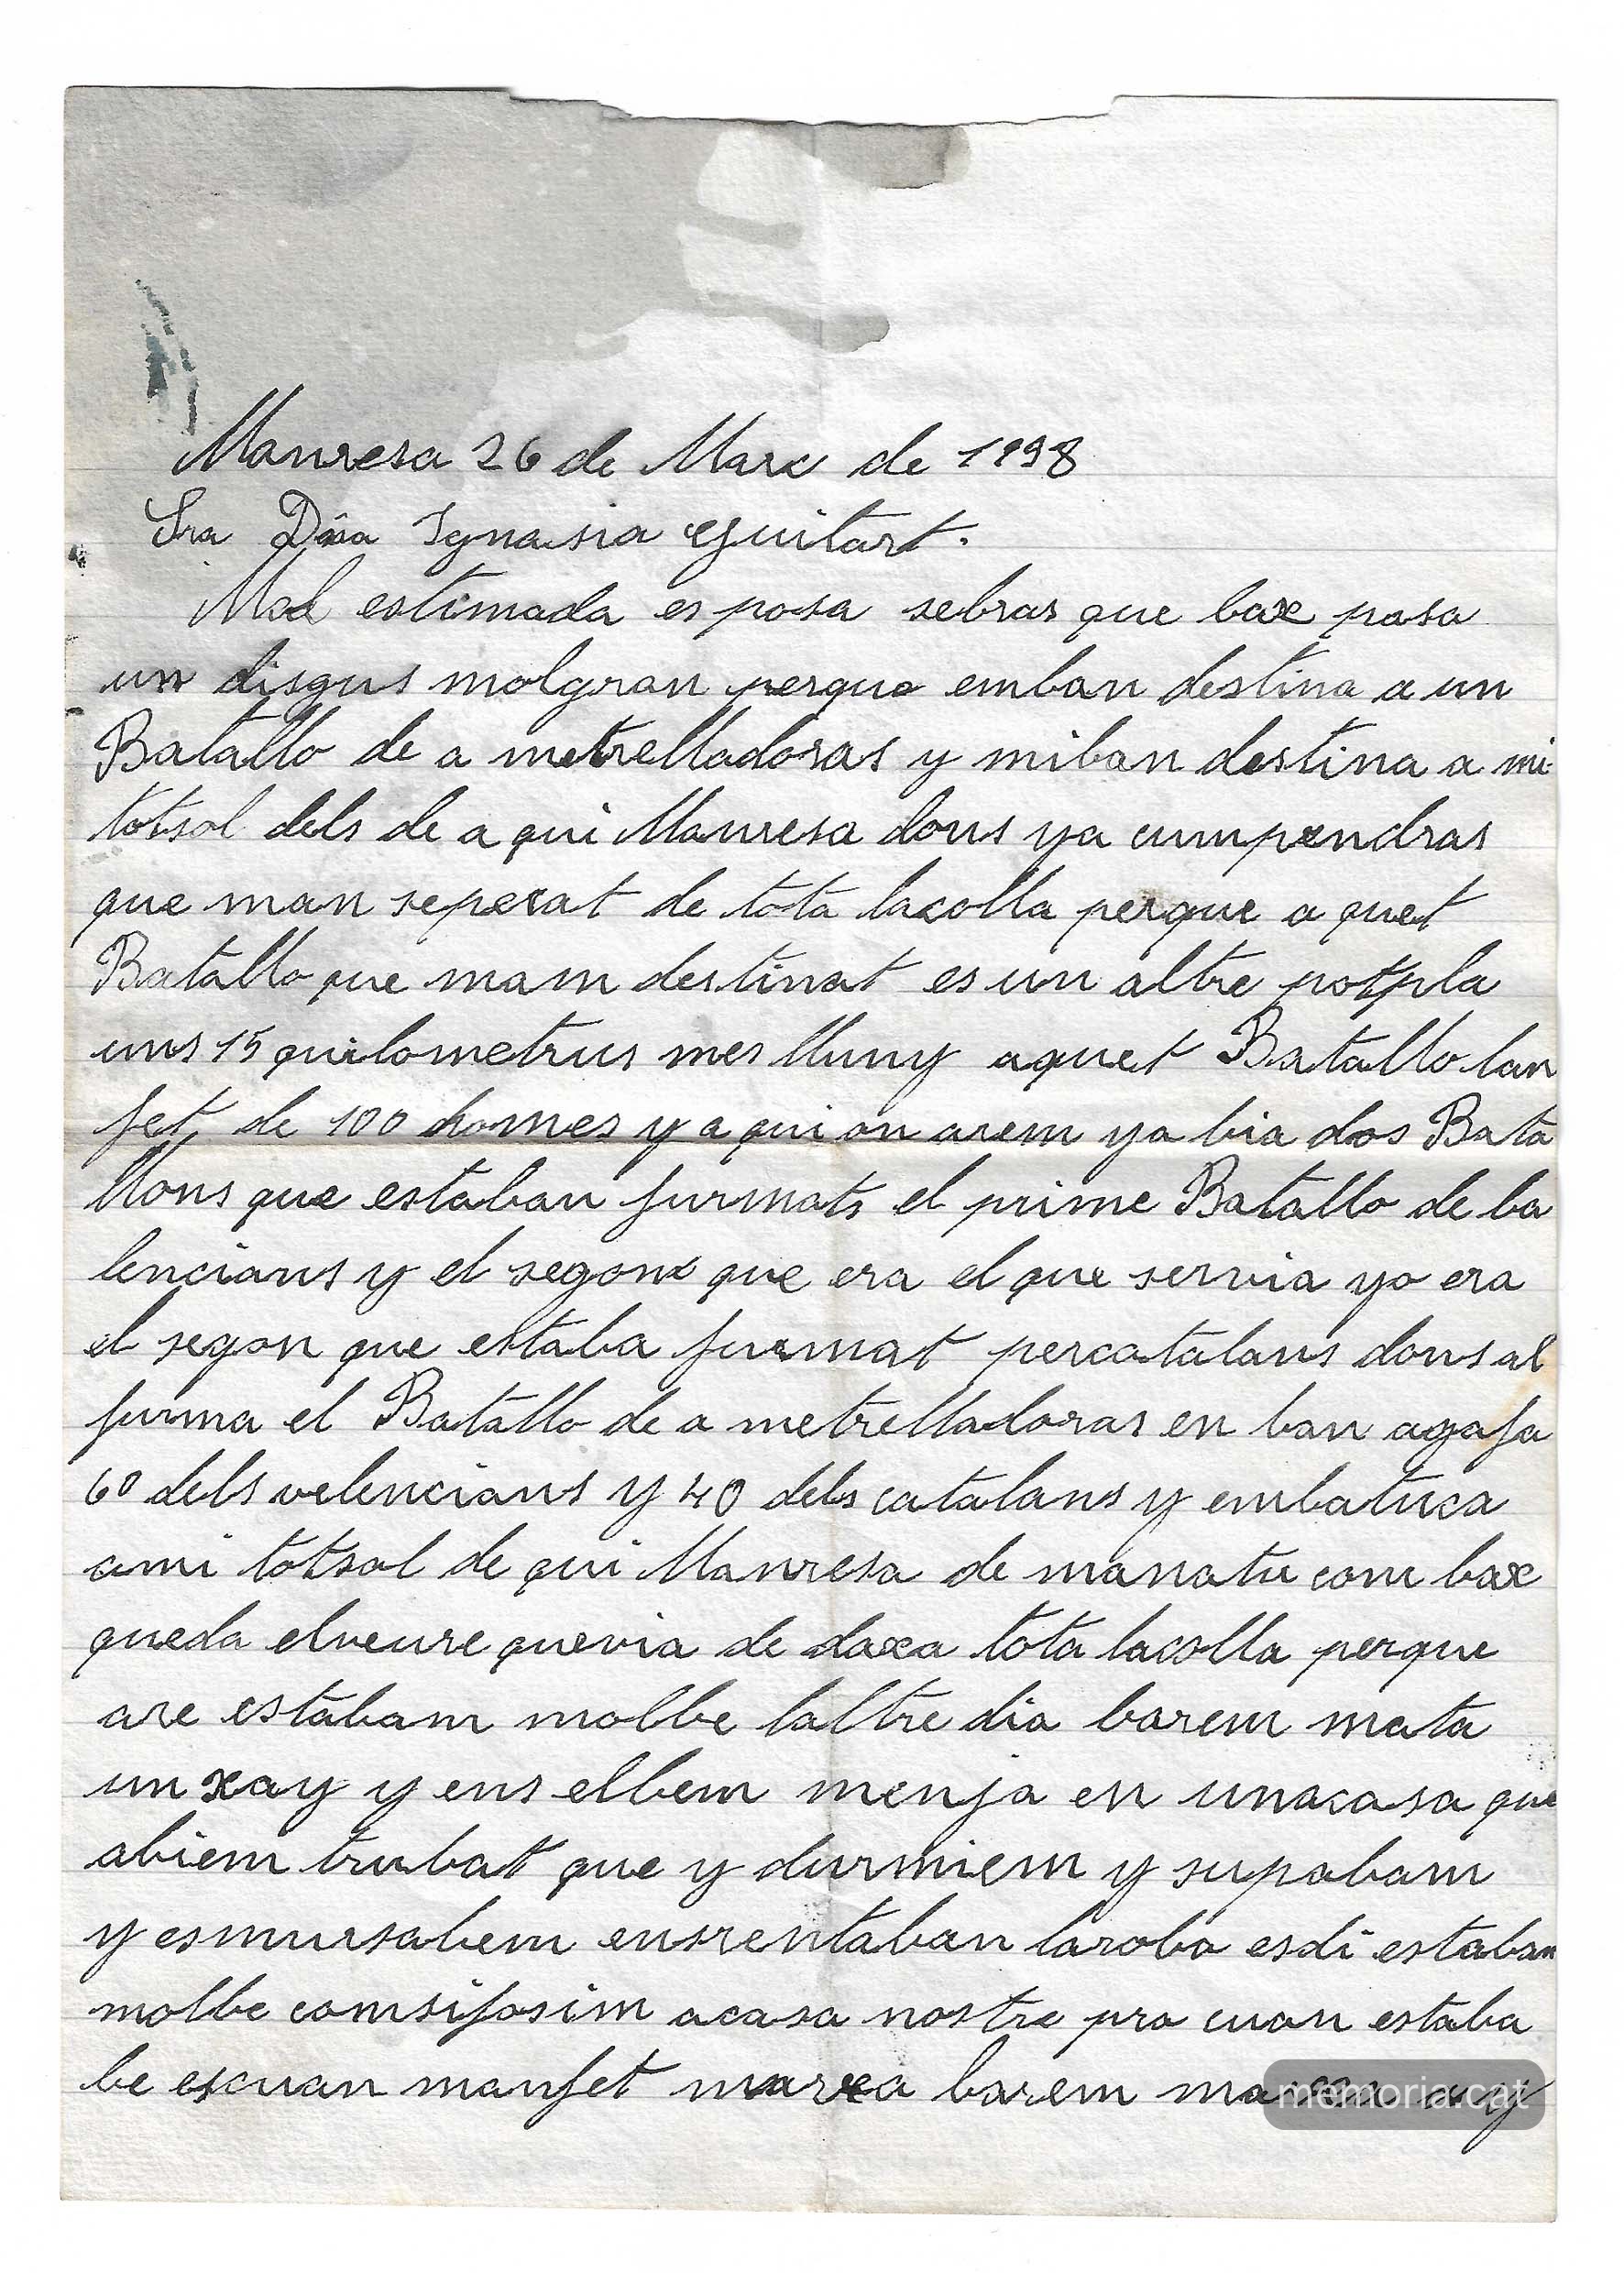 Manresa 26 de Marx de 1938
Sra Dña Ygnasia Guitart.
Mol estimada esposa sebras que bax pasa
un disgus molgran perque emban destina a un
Batallo de a metrelladoras y miban destina a mi
totsol dels de a qui Manresa dons ya cumpendras
que man seperat de tota lacolla perque a quet
Batallo que mam destinat es un altre potpla
uns 15 quilometrus mes lluny aquet Batallo lan
fet de 100 homes y a qui on arem ya bia dos Bata
llons que estaban furmats el prime Batallo de ba
lencians y el segon que era el que servia yo era
el segon que estaba furmat percatalans dons al
furma el Batallo de a metrelladoras en ban agafa
60 dels velencians y 40 dels catalans y embatuca
ami totsol de qui Manresa de manatu com bax
queda elveure quevia de daxa tota lacolla perque
are estabam molbe laltre dia barem mata
un xay y ens elbem menja en unacasa que
abiem trubat que y durmiem y supabam
y esmursabem ensrentaban laroba esdi estaban
molbe comsifosim acasa nostre pro cuan estaba
be escuan manfet marxa barem marxa
memoria.cat